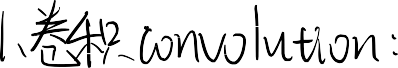 1、卷积 convolution: